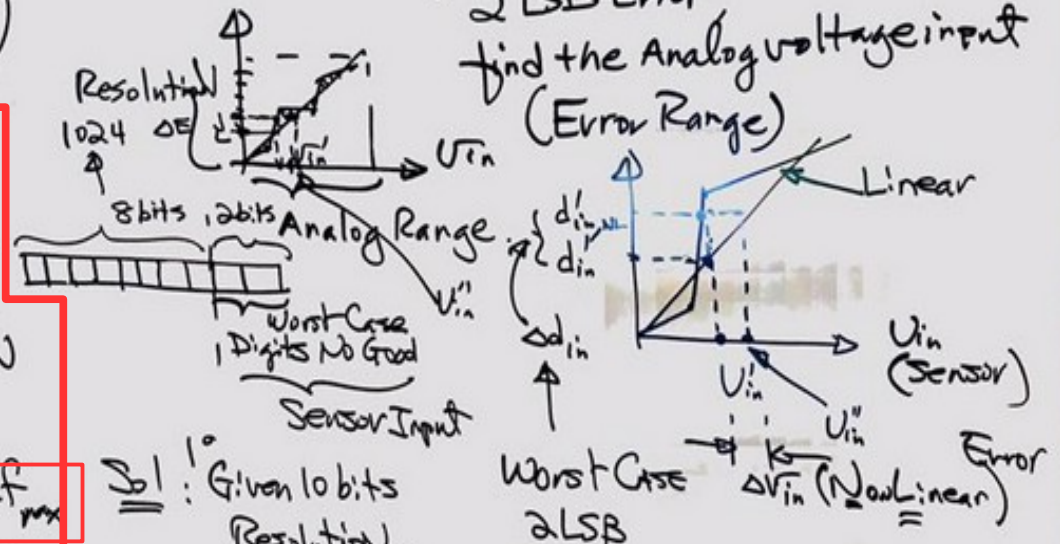 2 LSB Error
find the Analog voltage input
(Error Range)
Resolution
1024 ΔE
Vin
Vin'
8 bits, 2 bits
Analog Range
Vin''
Worst Case
Digits No Good
Sensor Input
Linear
d'in NL
d'in
Δdin
Vin
(Sensor)
Vin'
Vin''
Error
ΔVin (NonLinear)
Worst CASE
2LSB
fmax
Sol: 1° Given 10 bits
Resolution